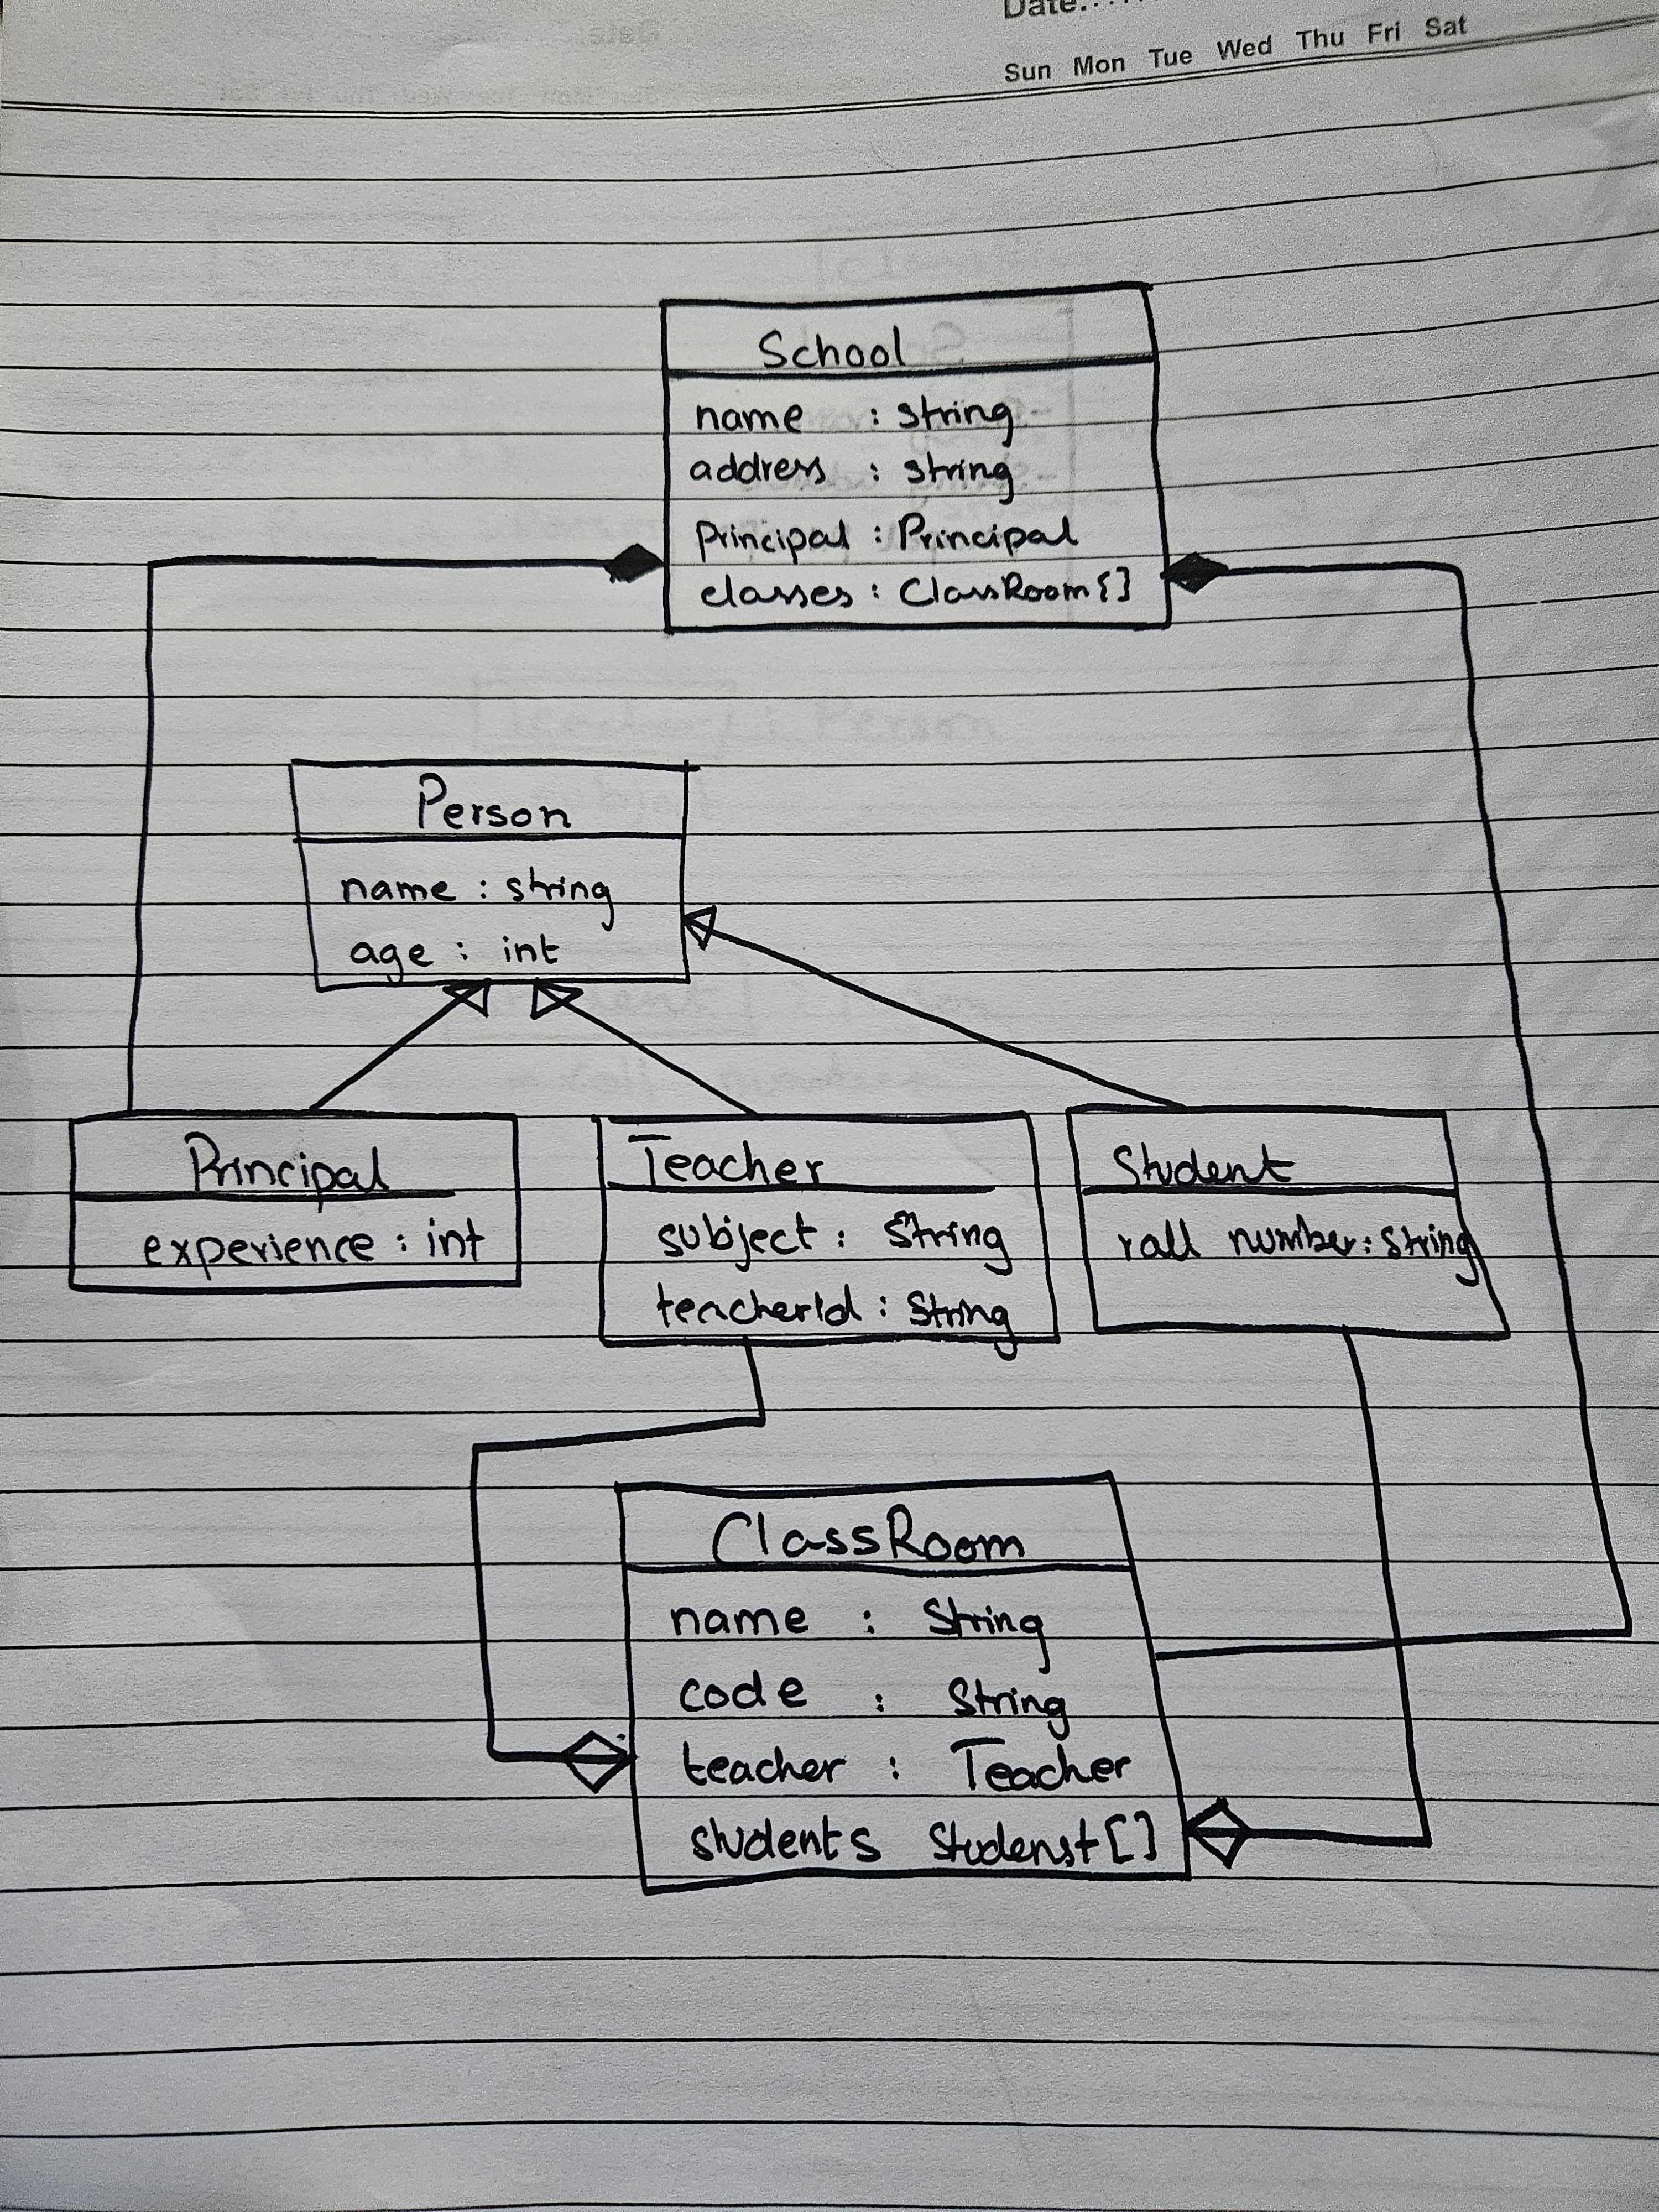 Date:....
Sun Mon Tue Wed Thu Fri Sat
School
name : string
address : string
Principal : Principal
classes : ClassRoom{]
Person
name : string
age : int
Principal
experience : int
Teacher
subject : String
teacherId : String
Student
roll number : String
ClassRoom
name : String
code : String
teacher : Teacher
students Studenst[]